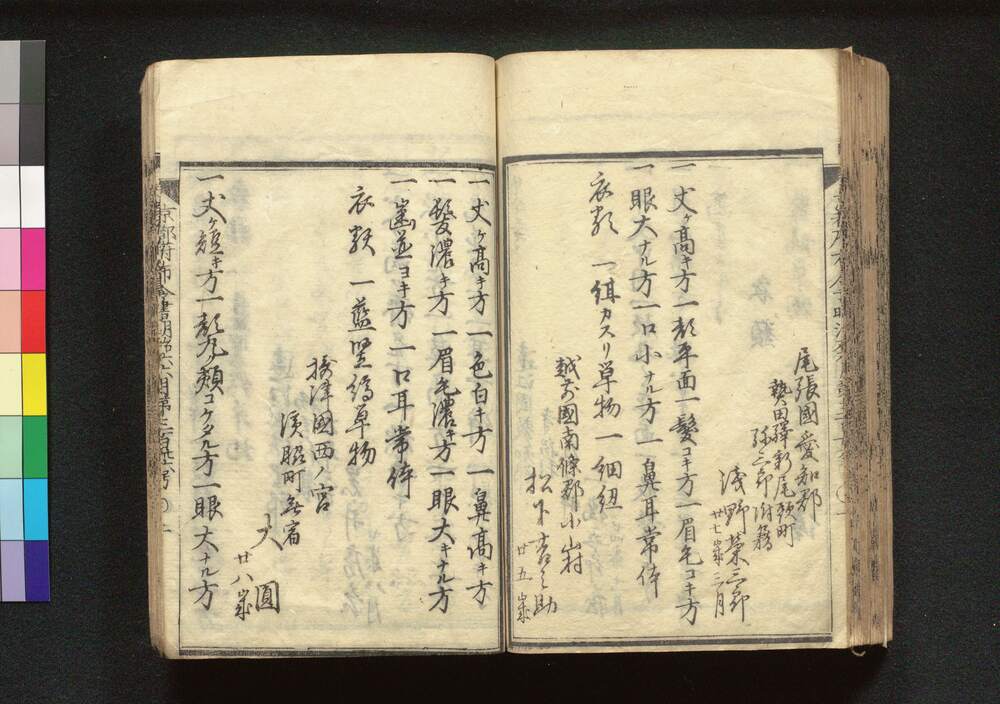 尾張國愛知郡
熱田驛新尾頭町
弥三郎附籍
浅野榮三郎
廿七歳三月
一丈ケ高キ方一顔平面一髪コキ方一眉毛コキ方
一眼大ナル方一口小ナル方一鼻耳常体
衣類 一紺カスリ単物一細紐
越前國南條郡小山村
松下吉之助
廿五歳
一丈ケ高キ方一色白キ方一鼻高キ方
一髪濃キ方一眉毛濃キ方一眼大キナル方
一歯並ヨキ方一口耳常体
衣類 一藍竪縞単物
摂津國西ノ宮
濱昭町無宿
圓
廿八歳
一丈ケ短キ方一顔丸ク頬コケタル方一眼大ナル方
京都府布令書明治六年六月第二百